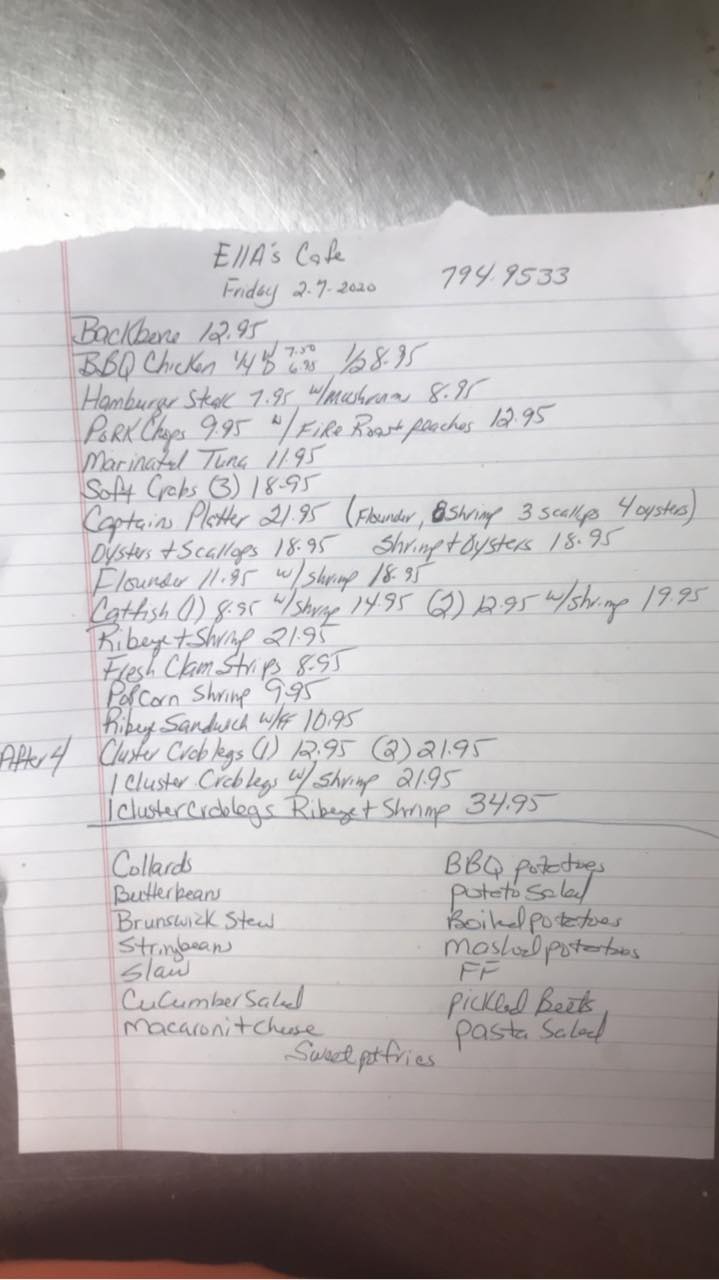 EllA's Cafe
794.9533
Friday 2-7-2020
Backbone 12.95
BBQ Chicken 1/4 W 7.50 D 6.95 1/2 8.95
Hamburger Steak 7.95 w/mushroom 8.95
PORK Chops 9.95 w/ FiRe Roast peaches 12.95
Marinated Tuna 11.95
Soft Crabs (3) 18.95
Captains Platter 21.95 (Flounder, 8 Shrimp 3 scallops 4 oysters)
Oysters + Scallops 18.95 Shrimp + Oysters 18.95
Flounder 11.95 w/ shrimp 18.95
Catfish (1) 8.95 w/shrimp 14.95 (2) 12.95 w/shrimp 19.95
Ribeye + Shrimp 21.95
Fresh Clam Strips 8.95
PopCorn Shrimp 9.95
Ribeye Sandwich w/FF 10.95
After 4 Cluster Crab legs (1) 12.95 (2) 21.95
1 Cluster Crab legs w/ Shrimp 21.95
1 Cluster Crablegs Ribeye + Shrimp 34.95
Collards BBQ potatoes
Butterbeans potato Salad
Brunswick Stew Boiled potatoes
Stringbeans mashed potatoes
Slaw FF
CuCumber Salad pickled Beets
macaroni + cheese pasta Salad
Sweet pot fries